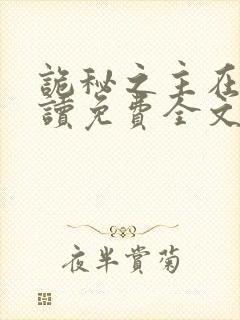 詭秘之主在
讀免費全文
夜半賞菊